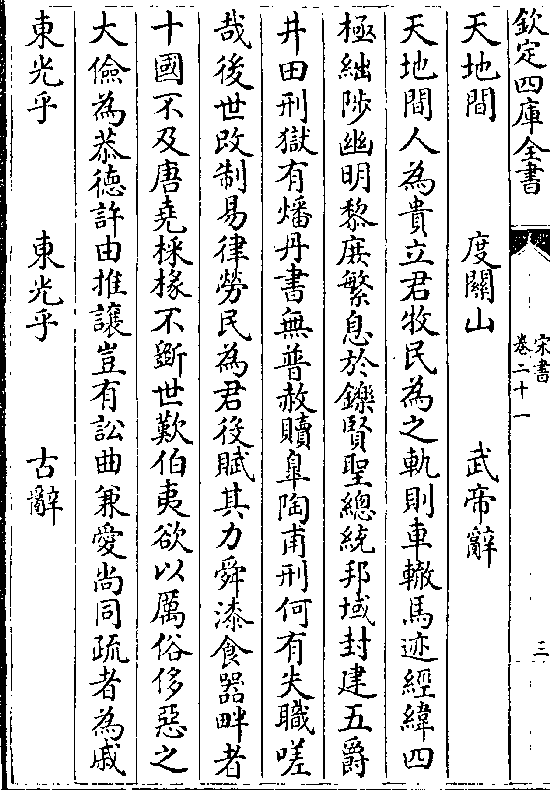 欽定四庫全書
宋書
卷二十一
三
天地間 度關山 武帝辭
天地間人為貴立君牧民為之軌則車轍馬迹經緯四
極絀陟幽明黎庶繁息於鑠賢聖總統邦域封建五爵
井田刑獄有燔丹書無普赦贖臯陶甫刑何有失職嗟
哉後世改制易律勞民為君役賦其力舜漆食器畔者
十國不及唐堯採椽不斵世歎伯夷欲以厲俗侈惡之
大儉為恭德許由推讓豈有訟曲兼愛尚同疏者為戚
東光乎 東光乎 古辭